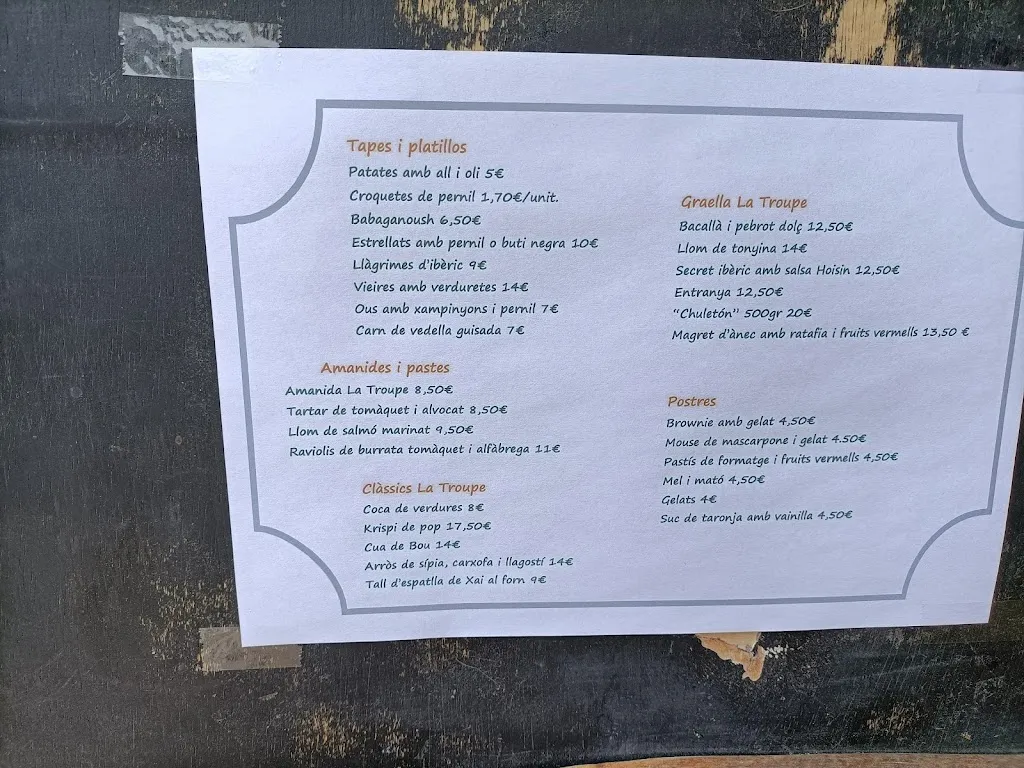 Tapes i platillos
Patates amb all i oli 5€
Croquetes de pernil 1,70€/unit.
Babaganoush 6,50€
Estrellats amb pernil o buti negra 10€
Llàgrimes d'ibèric 9€
Vieires amb verduretes 14€
Ous amb xampinyons i pernil 7€
Carn de vedella guisada 7€
Amanides i pastes
Amanida La Troupe 8,50€
Tartar de tomàquet i alvocat 8,50€
Llom de salmó marinat 9,50€
Raviolis de burrata tomàquet i alfàbrega 11€
Clàssics La Troupe
Coca de verdures 8€
Krispi de pop 17,50€
Cua de Bou 14€
Arròs de sípia, carxofa i llagostí 14€
Tall d'espatlla de Xai al forn 9€
Graella La Troupe
Bacallà i pebrot dolç 12,50€
Llom de tonyina 14€
Secret ibèric amb salsa Hoisin 12,50€
Entranya 12,50€
"Chuletón" 500gr 20€
Magret d'ànec amb ratafia i fruits vermells 13,50 €
Postres
Brownie amb gelat 4,50€
Mouse de mascarpone i gelat 4.50€
Pastís de formatge i fruits vermells 4,50€
Mel i mató 4,50€
Gelats 4€
Suc de taronja amb vainilla 4,50€